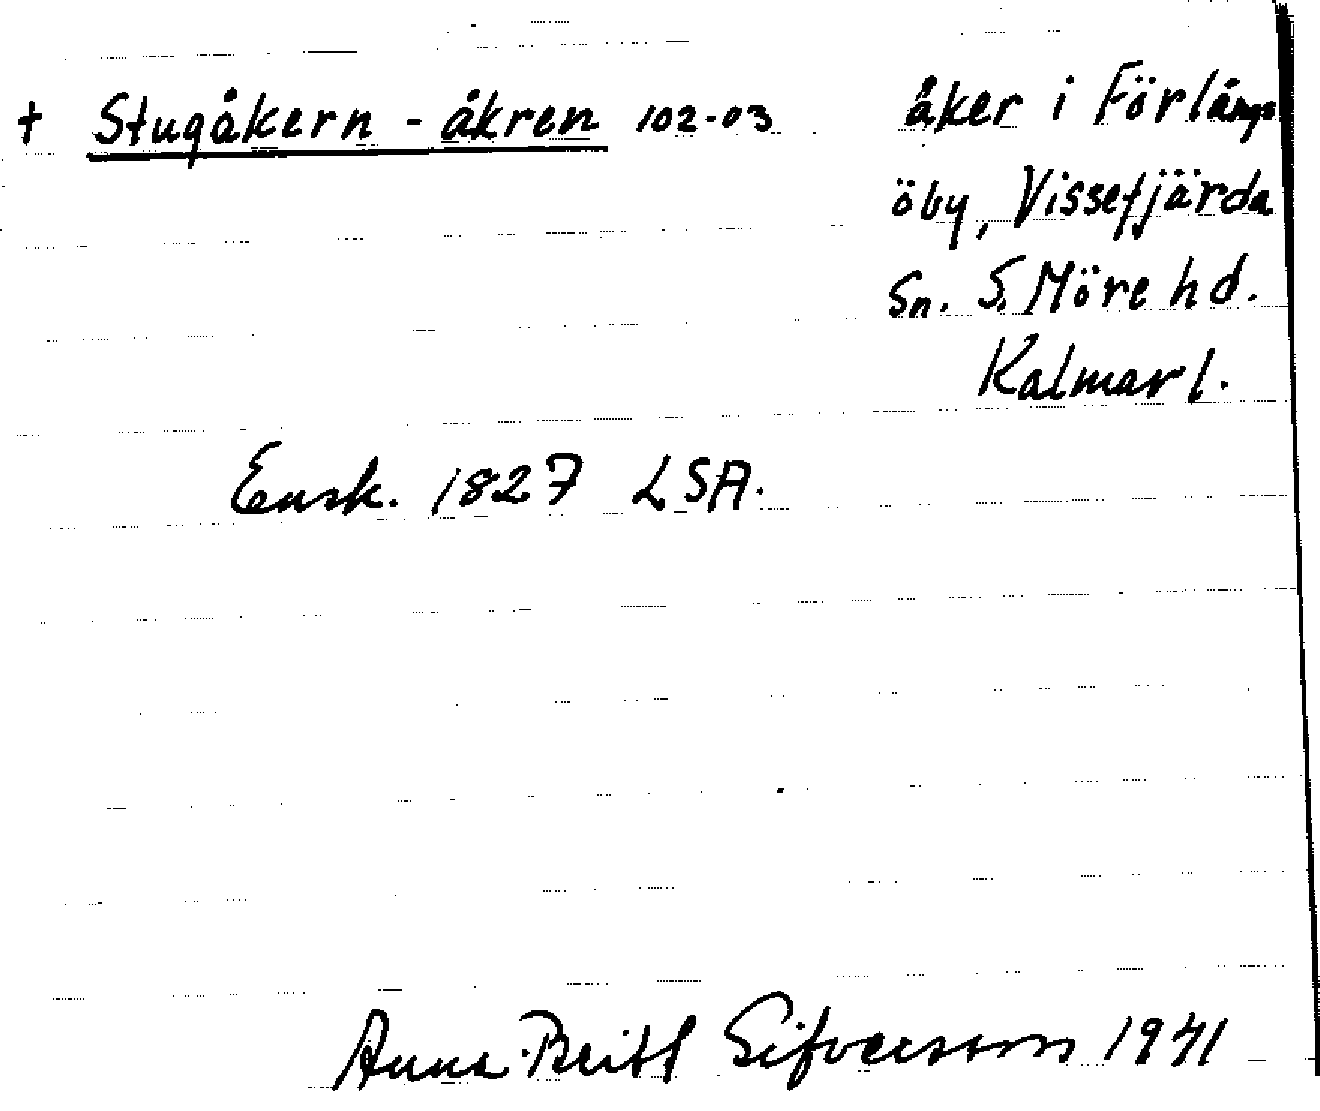 † Stugåkern - åkren 102-03 åker i Förlångs
öby, Vissefjärda
Sn. S. Möre hd.
Kalmar l.
Ensk. 1827 LSA.
Anna-Britt Sifversson 1941